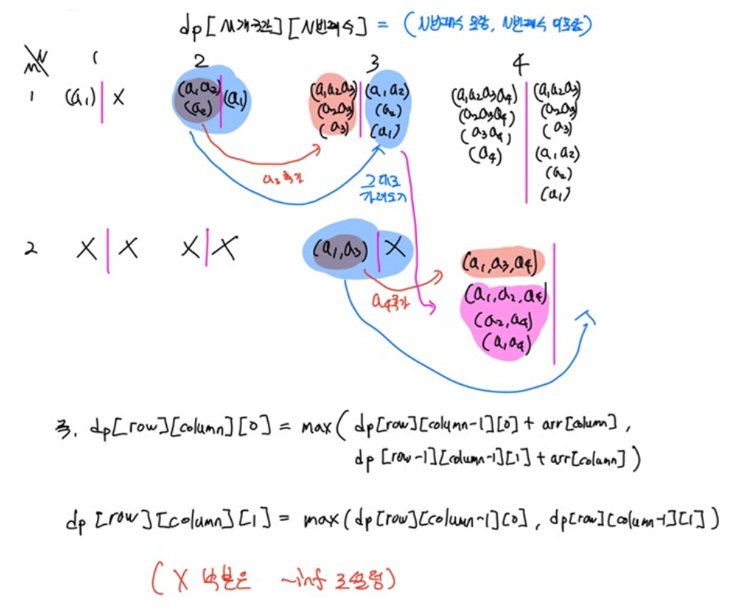 dp[M개구간][N번째수] = (N번째수 포함, N번째수 미포함)
M\N 1 2 3 4
1 (a₁) | X (a₁,a₂) | (a₁) (a₁a₂a₃) | (a₁,a₂) (a₁a₂a₃a₄) | (a₁a₂a₃)
(a₂) (a₂a₃) | (a₂) (a₂a₃a₄) | (a₂a₃)
(a₃) | (a₁) (a₃a₄) | (a₃)
(a₄) | (a₁,a₂)
(a₂)
(a₁)
a₃추가
그대로
가져오기
2 X | X X | X (a₁,a₃) | X (a₁,a₃,a₄)
a₄추가
(a₁,a₂,a₄)
(a₂,a₄)
(a₁a₄)
즉, dp[row][column][0] = max( dp[row][column-1][0] + arr[column],
dp[row-1][column-1][1] + arr[column])
dp[row][column][1] = max(dp[row][column-1][0], dp[row][column-1][1])
(X 부분은 -inf 로 설정)